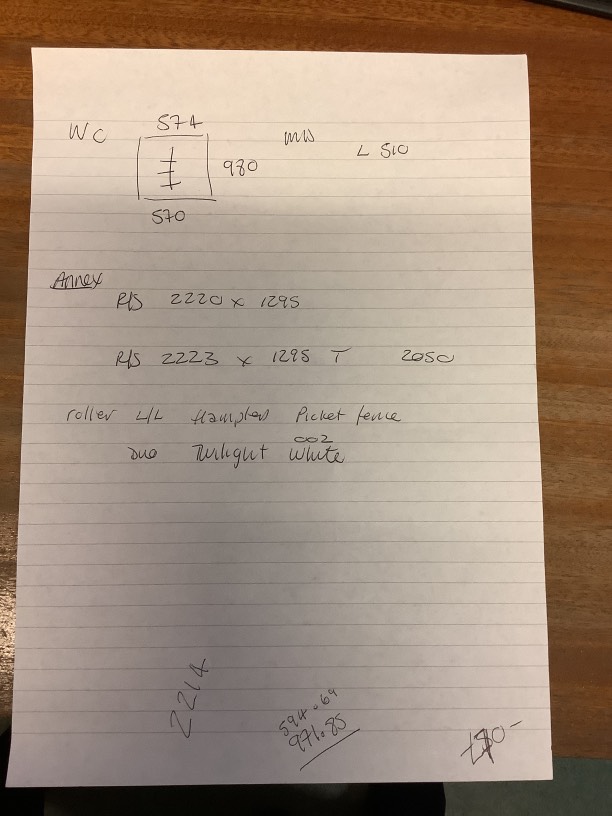 WC 574 MW L 510
980
570
Annex
R/S 2220 x 1295
R/S 2223 x 1295 T 2050
roller L/L Hampton Picket fence
Duo Twilight White 002
2214
594.69
971.85